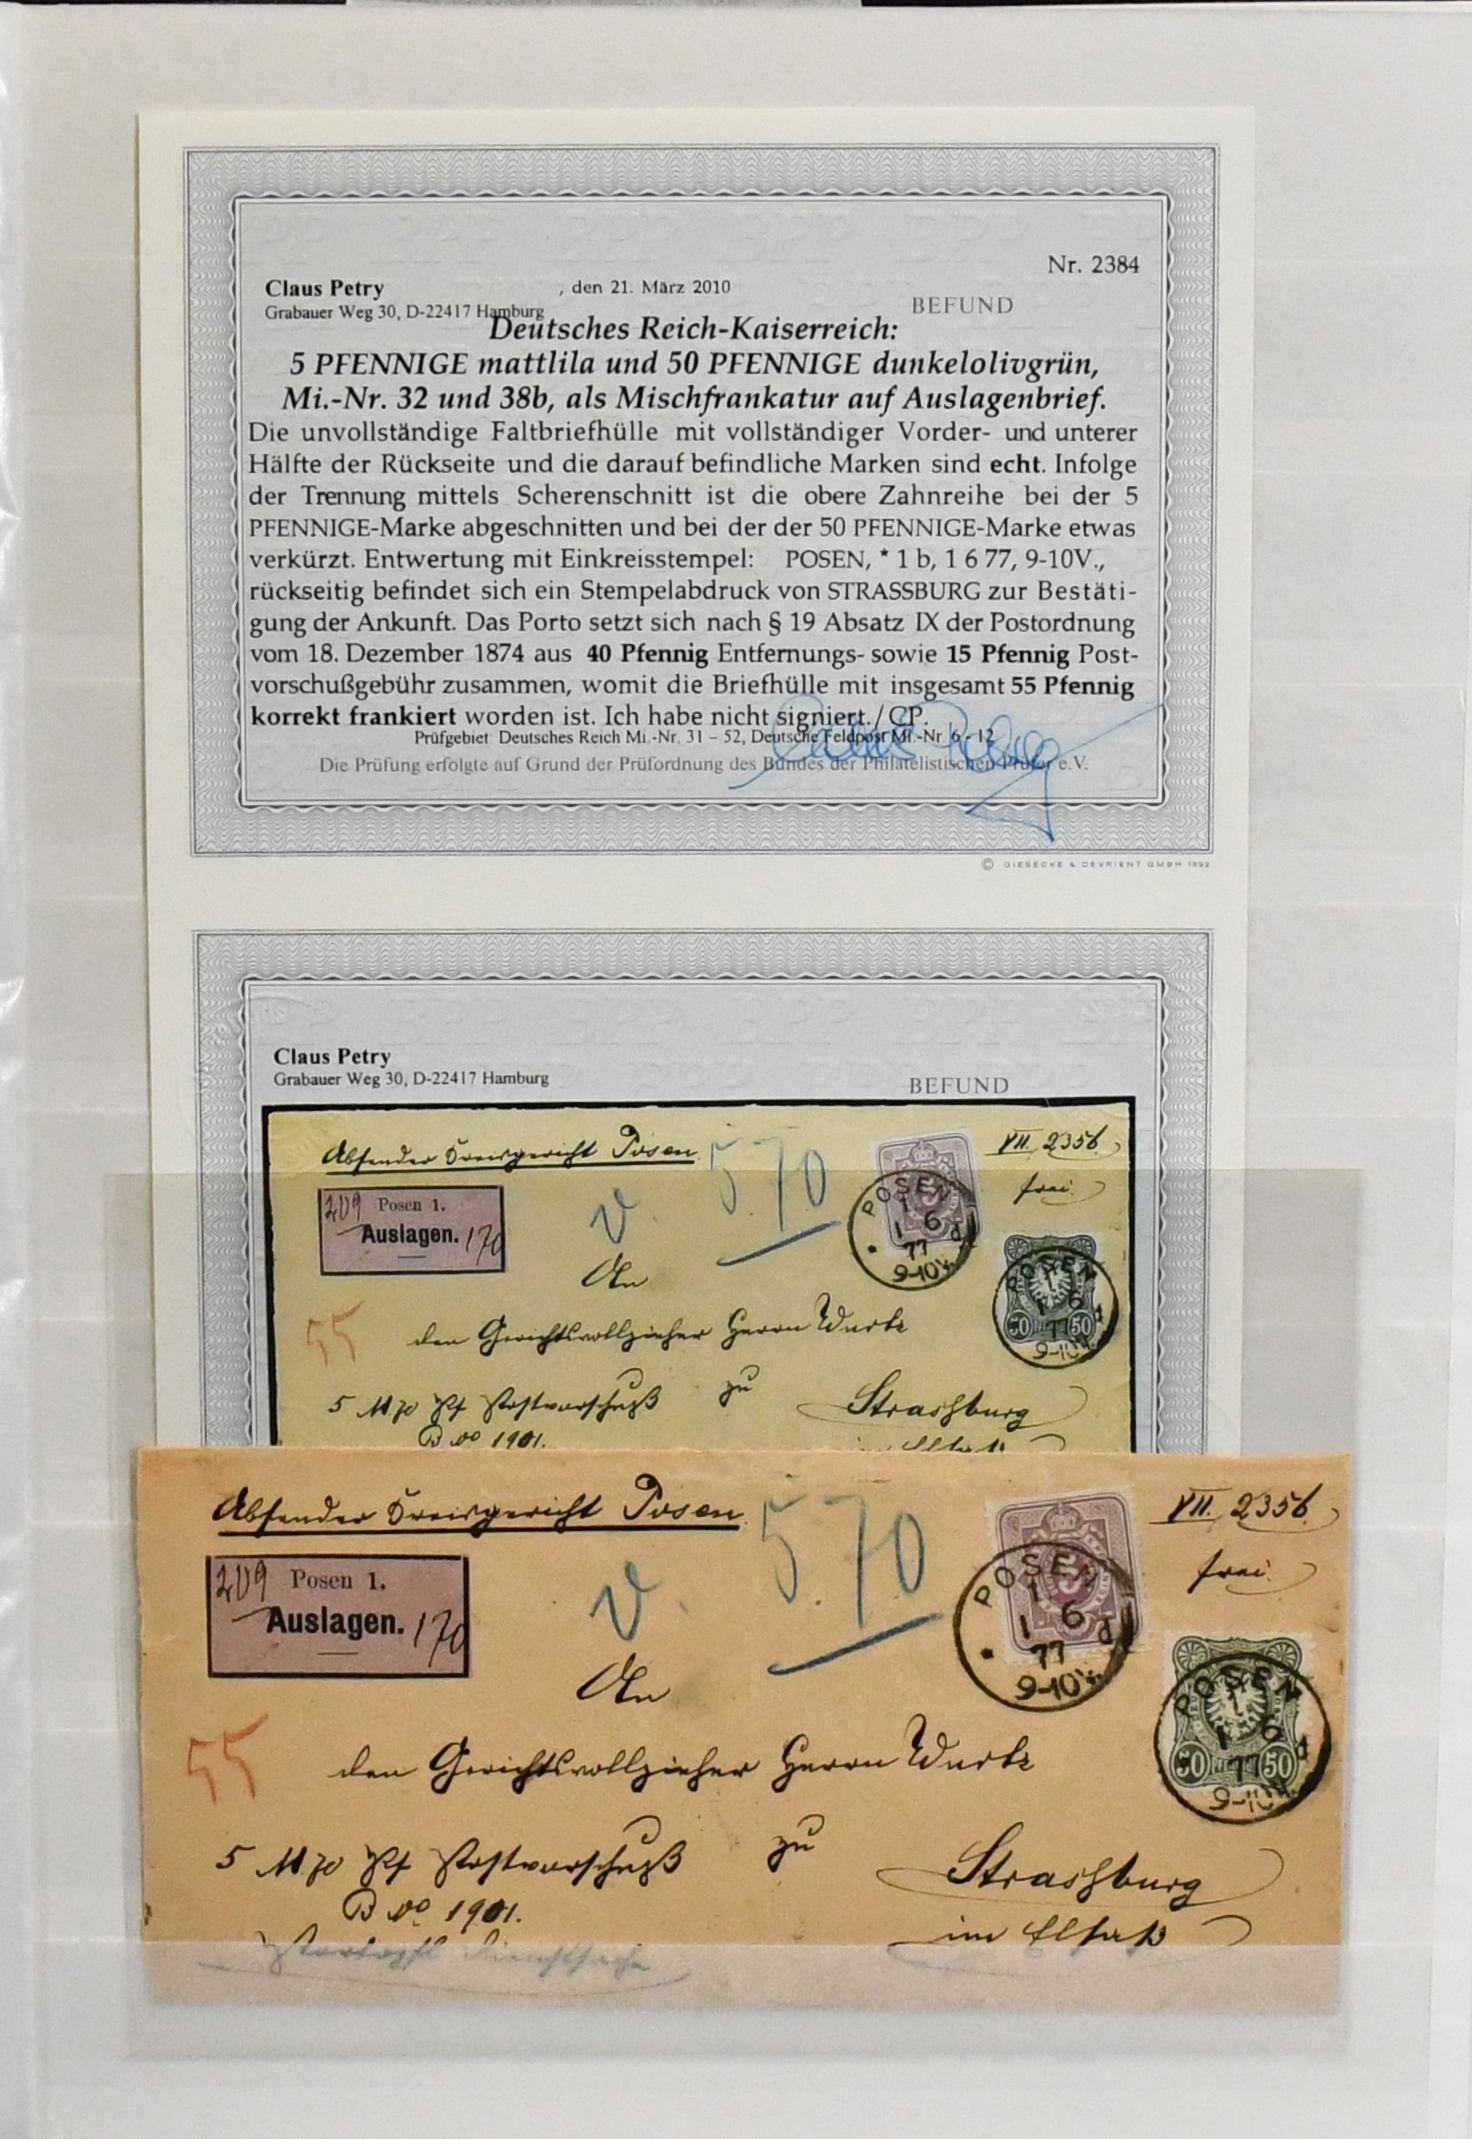 Nr. 2384
Claus Petry , den 21. März 2010
Grabauer Weg 30, D-22417 Hamburg BEFUND
Deutsches Reich-Kaiserreich:
5 PFENNIGE mattlila und 50 PFENNIGE dunkelolivgrün,
Mi.-Nr. 32 und 38b, als Mischfrankatur auf Auslagenbrief.
Die unvollständige Faltbriefhülle mit vollständiger Vorder- und unterer
Hälfte der Rückseite und die darauf befindliche Marken sind echt. Infolge
der Trennung mittels Scherenschnitt ist die obere Zahnreihe bei der 5
PFENNIGE-Marke abgeschnitten und bei der der 50 PFENNIGE-Marke etwas
verkürzt. Entwertung mit Einkreisstempel: POSEN, * 1 b, 1 6 77, 9-10V.,
rückseitig befindet sich ein Stempelabdruck von STRASSBURG zur Bestäti-
gung der Ankunft. Das Porto setzt sich nach § 19 Absatz IX der Postordnung
vom 18. Dezember 1874 aus 40 Pfennig Entfernungs- sowie 15 Pfennig Post-
vorschußgebühr zusammen, womit die Briefhülle mit insgesamt 55 Pfennig
korrekt frankiert worden ist. Ich habe nicht signiert./CP.
Prüfgebiet Deutsches Reich Mi.-Nr. 31 – 52, Deutsche Feldpost Mi.-Nr 6 - 12
Die Prüfung erfolgte auf Grund der Prüfordnung des Bundes der Philatelistischen Prüfer e.V.
© GIESECKE & DEVRIENT GMBH 1992
Claus Petry
Grabauer Weg 30, D-22417 Hamburg BEFUND
Absender Kreisgericht Posen 5 70 VII. 2356
frei
209 Posen 1.
Auslagen. 170
v.
POSEN
1
1 6
77 d
9-10V.
An
POSEN
1
1 6
77 d
9-10V.
50 50
55
den Gerichtsvollzieher Herrn
5 M 70 Pf Postvorschuß zu Strassburg
B No 1901.
Absender Kreisgericht Posen 5 70 VII. 2356
frei
209 Posen 1.
Auslagen. 170
v.
POSEN
1
1 6
77 d
9-10V.
An
POSEN
1
1 6
77 d
9-10V.
50 50
55
den Gerichtsvollzieher Herrn
5 M 70 Pf Postvorschuß zu Strassburg
B No 1901.
im Elsaß